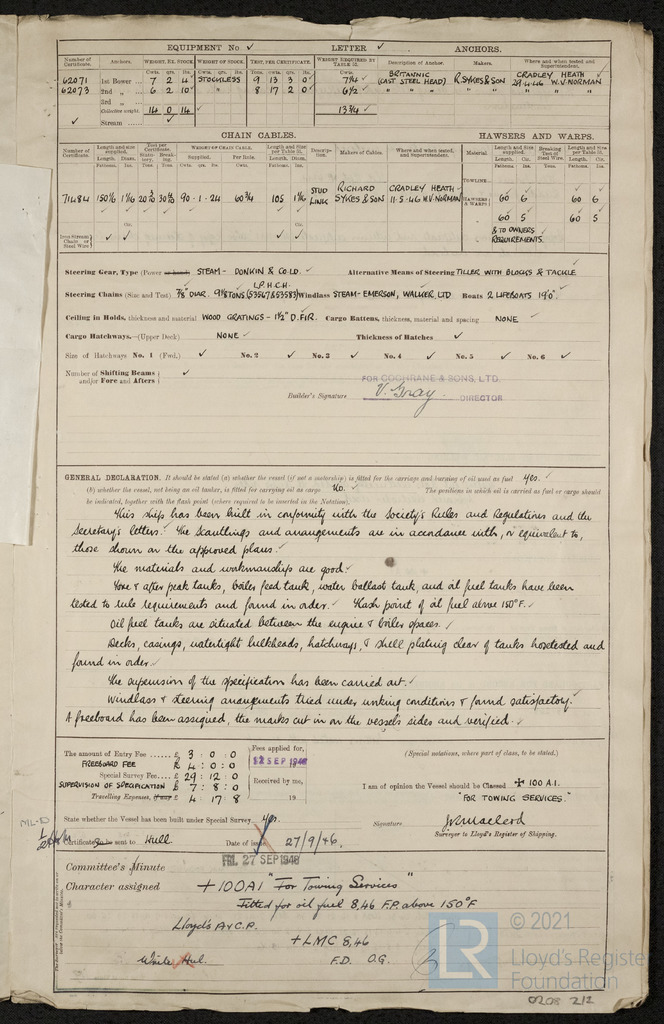 EQUIPMENT No. ✓ LETTER ✓ ANCHORS.
Number of Certificate. Anchors. WEIGHT, EX. STOCK WEIGHT OF STOCK. TEST, PER CERTIFICATE. WEIGHT REQUIRED BY TABLE 53. Description of Anchor. Makers. Where and when tested and Superintendent.
Cwts. qrs. lbs. Cwts. qrs. lbs. Tons. cwts. qrs. lbs. Cwts.
62071 1st Bower 7 2 4 STOCKLESS 9 13 3 0 7¼ BRITANNIC (CAST STEEL HEAD) R. SYKES & SON CRADLEY HEATH 29.4.46 W.V. NORMAN
62073 2nd " 6 2 10 " 8 17 2 0 6½ " " " " " "
3rd "
Collective weight 14 0 14 ✓ 13¾ ✓
✓ Stream ✓
CHAIN CABLES. HAWSERS AND WARPS.
Number of Certificate. Length and size supplied. Test per Certificate. WEIGHT OF CHAIN CABLE. Length and size per Table 53. Description. Makers of Cables. Where and when tested, and Superintendent. Material. Length and Size supplied. Breaking Test of Steel Wire. Length and size per Table 53.
Length. Diam. Statutory. Breaking. Supplied. Per Rule. Length. Diam. Length. Cir. Length. Cir.
TOWLINE
71484 150¼ 1 1/16 90 · 1 · 24 60¾ 105 1 1/16 STUD LINK RICHARD SYKES & SON CRADLEY HEATH 11.5.46 W.V. NORMAN HAWSERS & WARPS 60 6 60 6
60 5 60 5
Iron Stream Chain or Steel Wire ✓ ✓ ✓ ✓ & TO OWNERS REQUIREMENTS.
Steering Gear, Type (Power or hand) STEAM - DONKIN & CO LD. ✓ Alternative Means of Steering TILLER WITH BLOCKS & TACKLE
Steering Chains (Size and Test) ⅞" DIAR. 9⅛ TONS (53567 & 53583) L.P.H.C.H. Windlass STEAM - EMERSON, WALKER LTD Boats 2 LIFEBOATS 19'0" ✓
Ceiling in Holds, thickness and material WOOD GRATINGS - 1½" D. FIR. Cargo Battens, thickness, material and spacing NONE ✓
Cargo Hatchways.—(Upper Deck) NONE ✓ Thickness of Hatches ✓
Size of Hatchways No. 1 (Fwd.) ✓ No. 2 ✓ No. 3 ✓ No. 4 ✓ No. 5 ✓ No. 6 ✓
Number of Shifting Beams and/or Fore and Afters ✓
FOR COCHRANE & SONS, LTD.
Builder's Signature V. Gray. DIRECTOR
GENERAL DECLARATION. It should be stated (a) whether the vessel (if not a motorship) is fitted for the carriage and burning of oil used as fuel yes.
(b) whether the vessel, not being an oil tanker, is fitted for carrying oil as cargo No. The positions in which oil is carried as fuel or cargo should
be indicated, together with the flash point (where required to be inserted in the Notation).
This ship has been built in conformity with the Society's Rules and Regulations and the
Secretary's letters. The scantlings and arrangements are in accordance with, or equivalent to,
those shown on the approved plans.
The materials and workmanship are good.
Fore & after peak tanks, boiler feed tank, water ballast tank, and oil fuel tanks have been
tested to rule requirements and found in order. ✓ Flash point of oil fuel above 150°F. ✓
Oil fuel tanks are situated between the engine & boiler spaces.
Decks, casings, watertight bulkheads, hatchways, & shell plating clear of tanks hosetested and
found in order. ✓
The supervision of the specification has been carried out.
Windlass & steering arrangements tried under working conditions & found satisfactory.
A freeboard has been assigned, the marks cut in on the vessel's sides and verified.
The amount of Entry Fee £ 3 : 0 : 0
FREEBOARD FEE £ 4 : 0 : 0
Special Survey Fee £ 29 : 12 : 0
SUPERVISION OF SPECIFICATION £ 7 : 8 : 0
Travelling Expenses, if any £ 4 : 17 : 8
Fees applied for,
12 SEP 1946
Received by me,
19
(Special notations, where part of class, to be stated.)
I am of opinion the Vessel should be Classed + 100 A.1.
"FOR TOWING SERVICES."
State whether the Vessel has been built under Special Survey yes.
Signature
Surveyor to Lloyd's Register of Shipping.
Certificate to be sent to Hull Date of issue 27/9/46.
FRI. 27 SEP 1946
Committee's Minute
Character assigned +100A1 "For Towing Services"
Fitted for oil fuel 8,46 F.P. above 150°F
Lloyd's A & C.P.
+ LMC 8,46
F.D. O.G.
© 2021
LR
Lloyd's Register
Foundation
0208 2/2